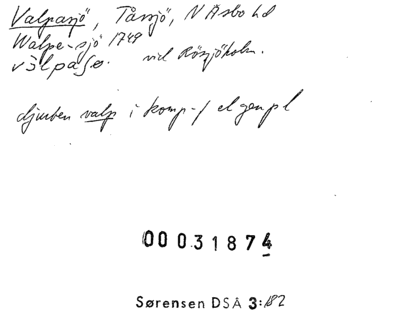 Valpasjö, Tåssjö, N Åsbo hd
Walpe-sjö 1749
vid Rösjöholm.
djurben valp i komp-f el gen pl
00 031874
Sørensen DSÅ 3:182